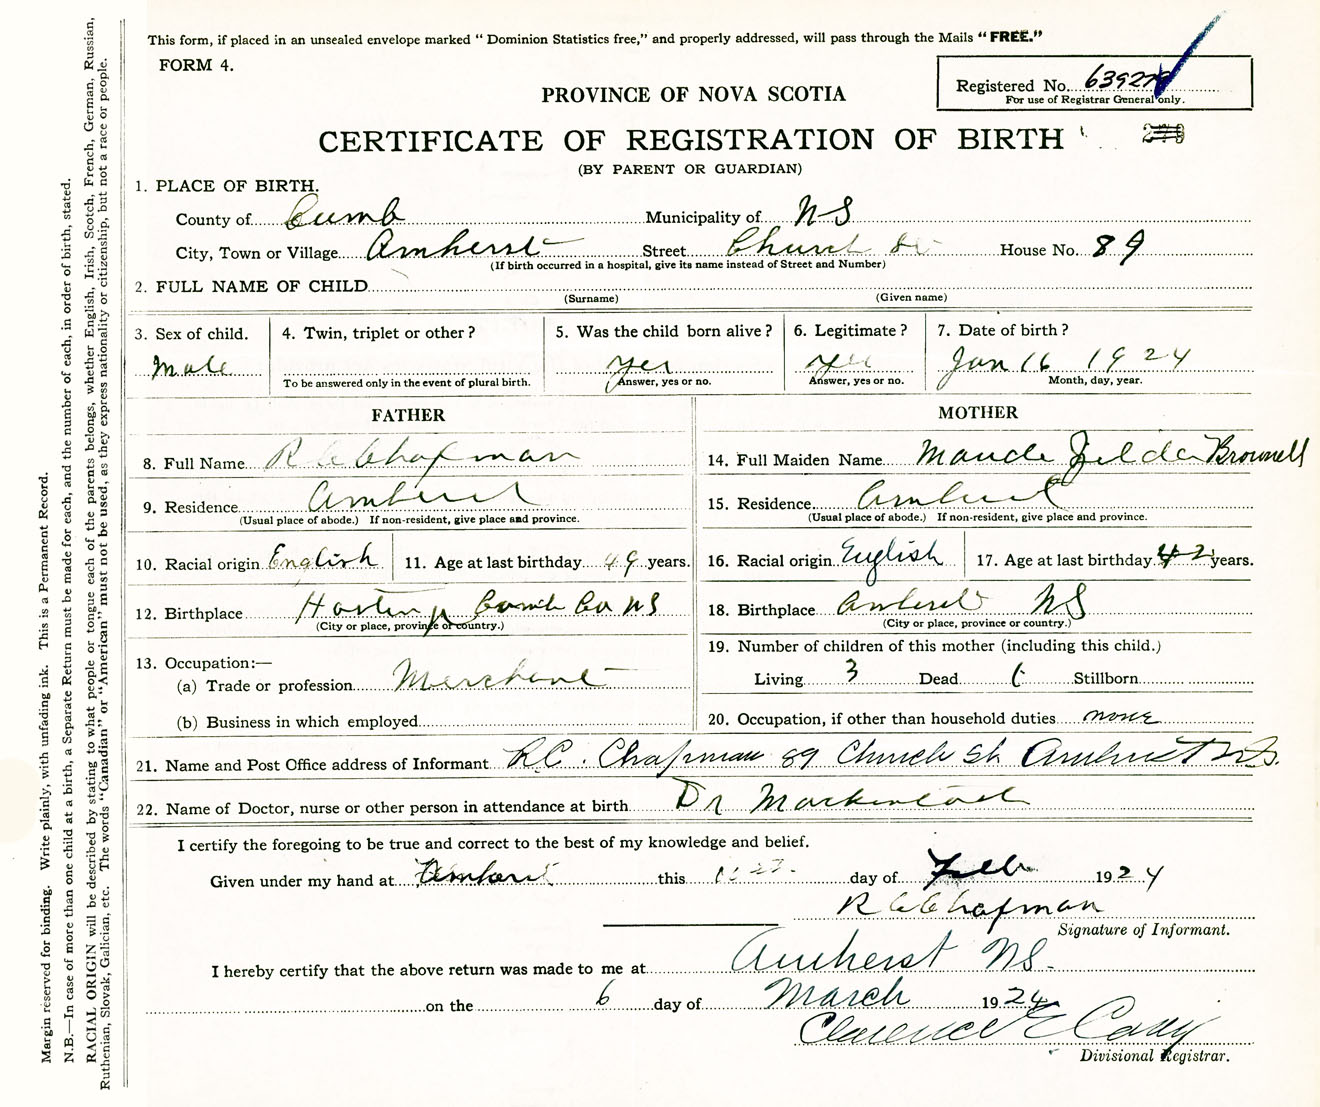 This form, if placed in an unsealed envelope marked "Dominion Statistics free," and properly addressed, will pass through the Mails "FREE."
FORM 4.
Registered No. 639279
For use of Registrar General only.
PROVINCE OF NOVA SCOTIA
CERTIFICATE OF REGISTRATION OF BIRTH
(BY PARENT OR GUARDIAN)
1. PLACE OF BIRTH.
County of Cumb Municipality of NS
City, Town or Village Amherst Street Church St House No. 89
(If birth occurred in a hospital, give its name instead of Street and Number)
2. FULL NAME OF CHILD
(Surname) (Given name)
3. Sex of child. 4. Twin, triplet or other? 5. Was the child born alive? 6. Legitimate? 7. Date of birth?
Male yes yes Jan 16 1924
To be answered only in the event of plural birth. Answer, yes or no. Answer, yes or no. Month, day, year.
FATHER
8. Full Name R C Chapman
9. Residence Amherst
(Usual place of abode.) If non-resident, give place and province.
10. Racial origin English 11. Age at last birthday 49 years.
12. Birthplace Hastings Cumb Co NS
(City or place, province or country.)
13. Occupation:—
(a) Trade or profession Merchant
(b) Business in which employed
MOTHER
14. Full Maiden Name Maude Zelda Brownell
15. Residence Amherst
(Usual place of abode.) If non-resident, give place and province.
16. Racial origin English 17. Age at last birthday 42 years.
18. Birthplace Amherst NS
(City or place, province or country.)
19. Number of children of this mother (including this child.)
Living 3 Dead Stillborn
20. Occupation, if other than household duties none
21. Name and Post Office address of Informant R.C. Chapman 89 Church St. Amherst N.S.
22. Name of Doctor, nurse or other person in attendance at birth Dr Mackintosh
I certify the foregoing to be true and correct to the best of my knowledge and belief.
Given under my hand at Amherst this day of Feb 1924
R C Chapman
Signature of Informant.
I hereby certify that the above return was made to me at Amherst NS.
on the 6 day of March 1924
Clarence E Casey
Divisional Registrar.
Margin reserved for binding. Write plainly, with unfading ink. This is a Permanent Record.
N.B.—In case of more than one child at a birth, a Separate Return must be made for each, and the number of each, in order of birth, stated.
RACIAL ORIGIN will be described by stating to what people or tongue each of the parents belongs, whether English, Irish, Scotch, French, German, Russian,
Ruthenian, Slovak, Galician, etc. The words "Canadian" or "American" must not be used, as they express nationality or citizenship, but not a race or people.